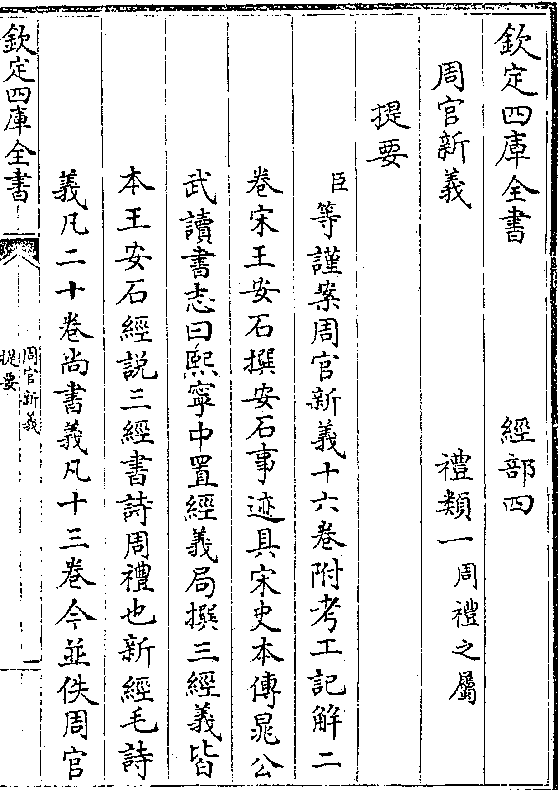 欽定四庫全書　經部四
周官新義　禮類一周禮之屬
提要
臣等謹案周官新義十六卷附考工記解二
卷宋王安石撰安石事迹具宋史本傳晁公
武讀書志曰熙寧中置經義局撰三經義皆
本王安石經說三經書詩周禮也新經毛詩
義凡二十卷尚書義凡十三卷今並佚周官
欽定四庫全書
周官新義
提要
一